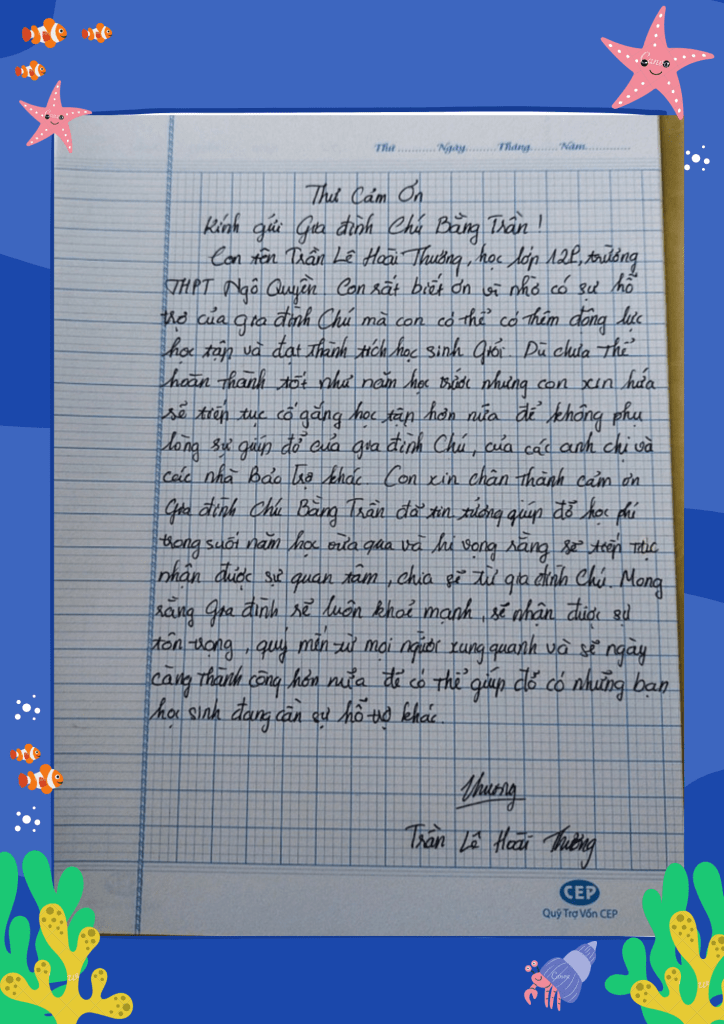 Thứ...........Ngày.........Tháng........Năm..............
Thư Cảm Ơn
Kính gửi Gia đình Chú Bằng Trần!
Con tên Trần Lê Hoài Thương, học lớp 12P, trường
THPT Ngô Quyền. Con rất biết ơn vì nhờ có sự hỗ
trợ của gia đình Chú mà con có thể có thêm động lực
học tập và đạt thành tích học sinh Giỏi. Dù chưa thể
hoàn thành tốt như năm học trước nhưng con xin hứa
sẽ tiếp tục cố gắng học tập hơn nữa để không phụ
lòng sự giúp đỡ của gia đình Chú, của các anh chị và
các nhà Bảo Trợ khác. Con xin chân thành cảm ơn
Gia đình Chú Bằng Trần đã tin tưởng giúp đỡ học phí
trong suối năm học vừa qua và hi vọng rằng sẽ tiếp tục
nhận được sự quan tâm, chia sẽ từ gia đình Chú. Mong
rằng Gia đình sẽ luôn khoẻ mạnh, sẽ nhận được sự
tôn trọng, quý mến từ mọi người xung quanh và sẽ ngày
càng thành công hơn nữa để có thể giúp đỡ có những bạn
học sinh đang cần sự hỗ trợ khác.
Thương
Trần Lê Hoài Thương
CEP
Quỹ Trợ Vốn CEP